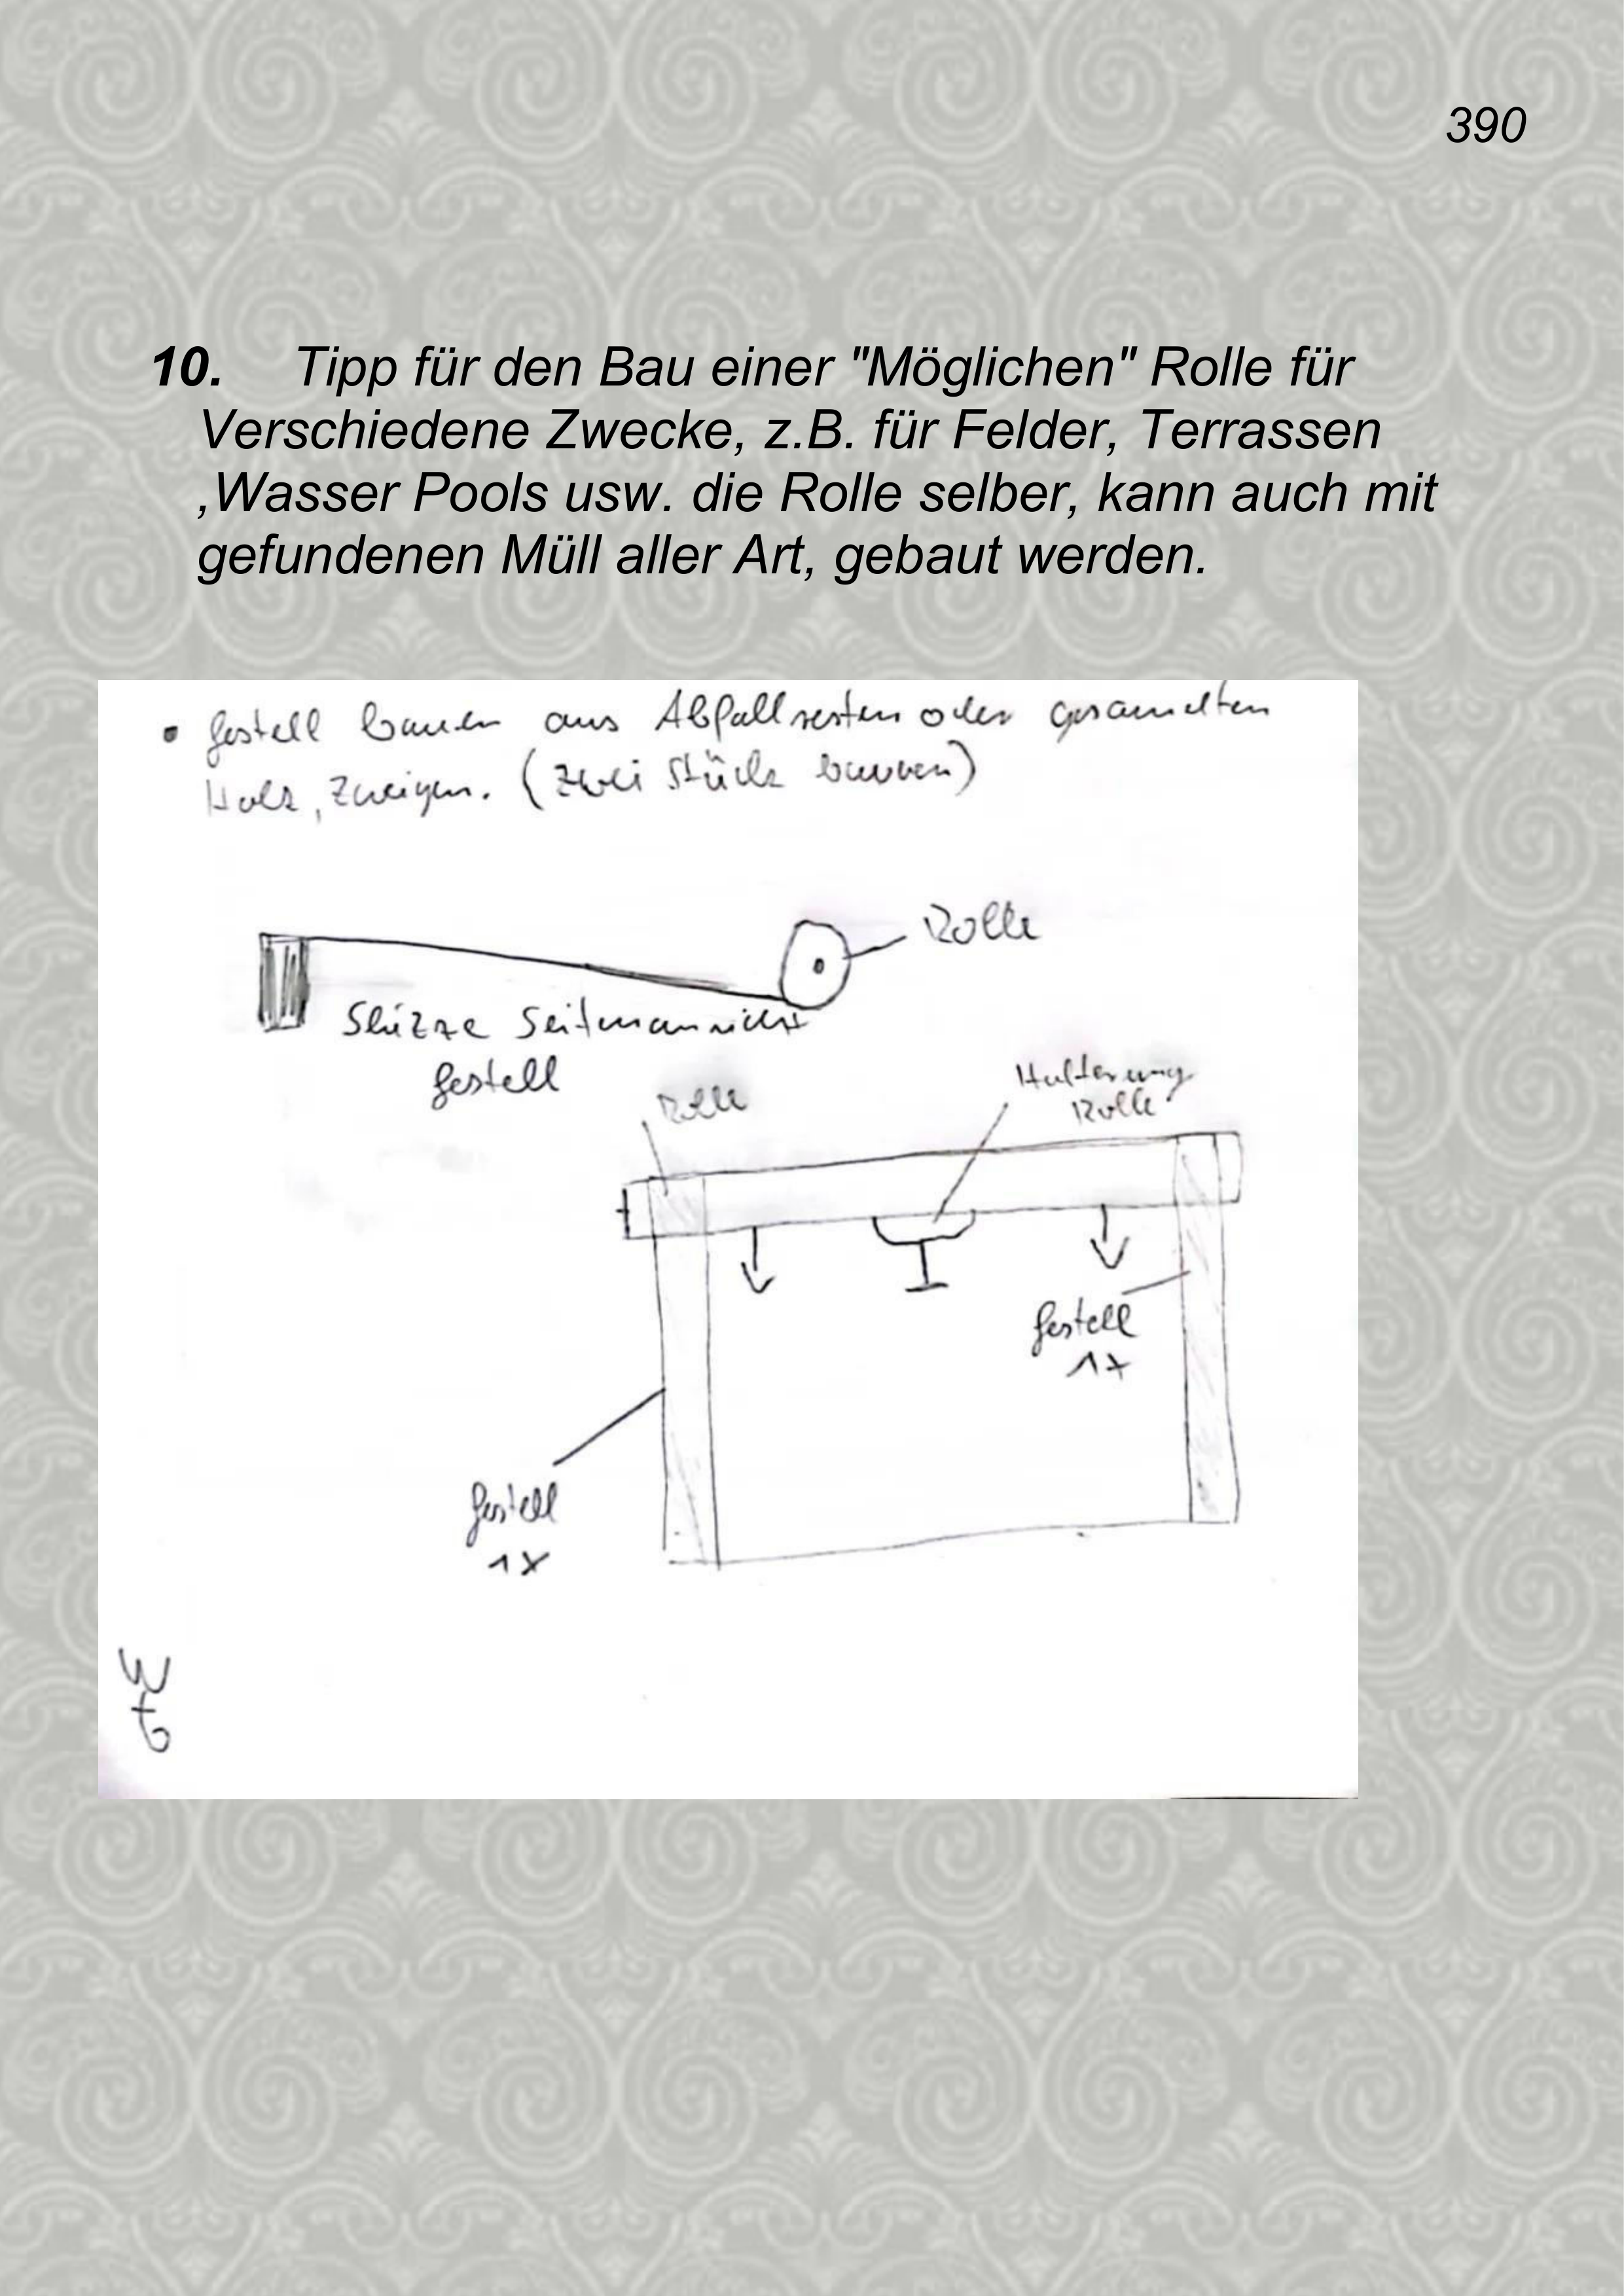 390
10. Tipp für den Bau einer "Möglichen" Rolle für
Verschiedene Zwecke, z.B. für Felder, Terrassen
,Wasser Pools usw. die Rolle selber, kann auch mit
gefundenen Müll aller Art, gebaut werden.
• Gestell bauen aus Abfallresten oder gesamelten
Holz, Zweigen. (Zwei Stück bauen)
Rolle
Skizze Seitenansicht
Gestell
Rolle
Halterung
Rolle
Gestell
1x
Gestell
1x